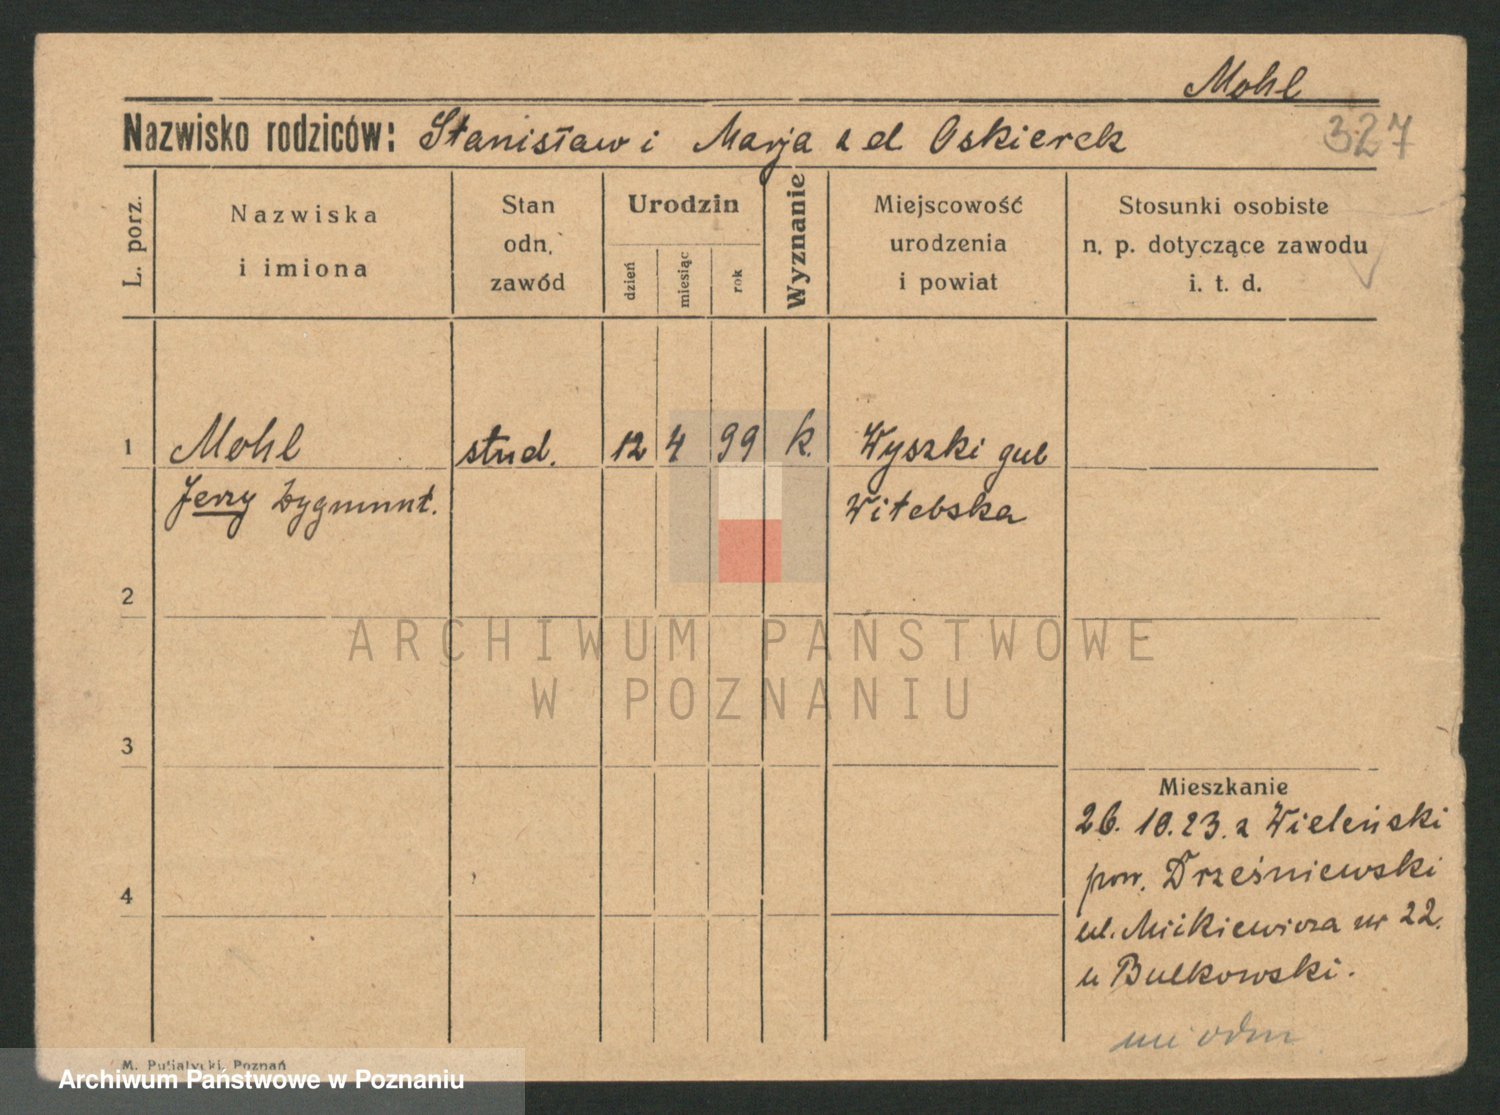 Mohl
Nazwisko rodziców: Stanisław i Marja z d. Oskierek
327
L. porz.
Nazwiska
i imiona
Stan
odn.
zawód
Urodzin
dzień
miesiąc
rok
Wyznanie
Miejscowość
urodzenia
i powiat
Stosunki osobiste
n. p. dotyczące zawodu
i. t. d.
1
Mohl
stud.
12
4
99
k.
Wyszki gub
Jerzy Zygmunt.
Witebska
2
3
4
Mieszkanie
26. 10. 23. z Wieleński
pow. Drześniewski
ul. Mickiewicza nr 22.
u Bulkowski.
ARCHIWUM PAŃSTWOWE
W POZNANIU
M. Putiatycki, Poznań
Archiwum Państwowe w Poznaniu